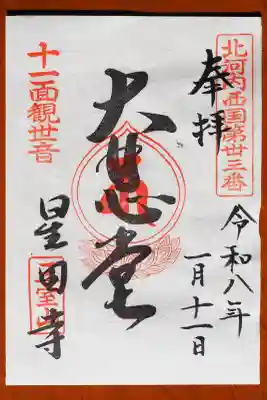 北河内西国第廿三番
奉拝
令和八年
一月十一日
大悲堂
十一面観世音
星田寺